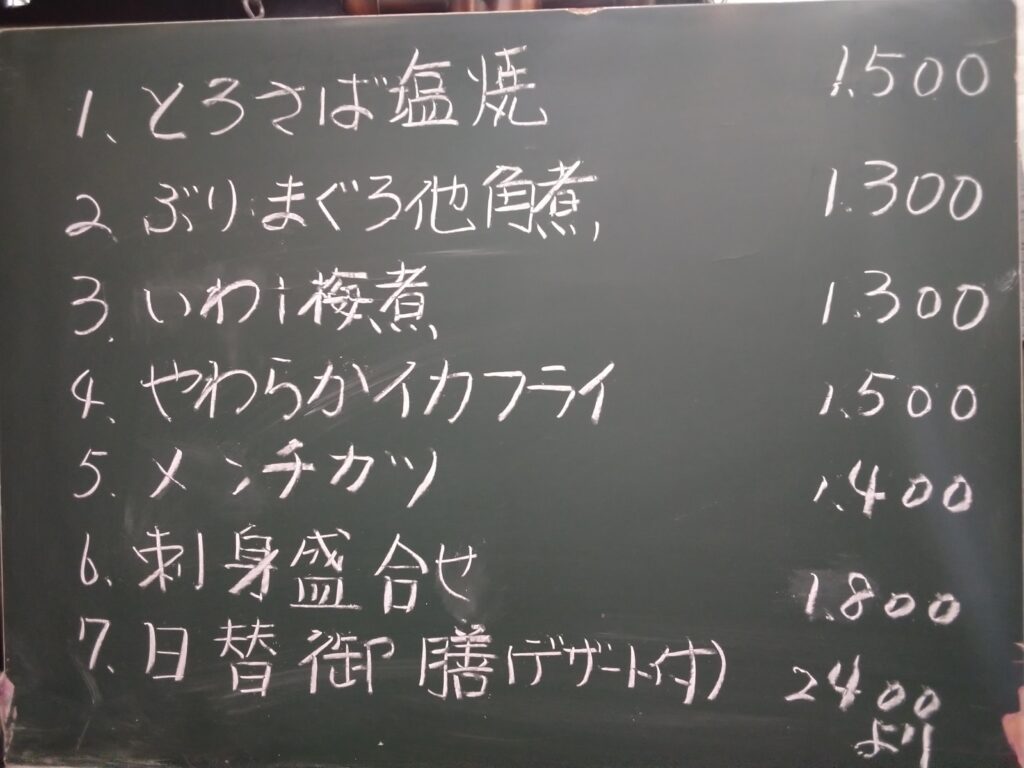 1、とろさば塩焼 1.500
2、ぶりまぐろ他角煮 1.300
3. いわし梅煮 1.300
4、やわらかイカフライ 1.500
5. メンチカツ 1.400
6、刺身盛合せ 1.800
7、日替御膳(デザート付) 2400
より